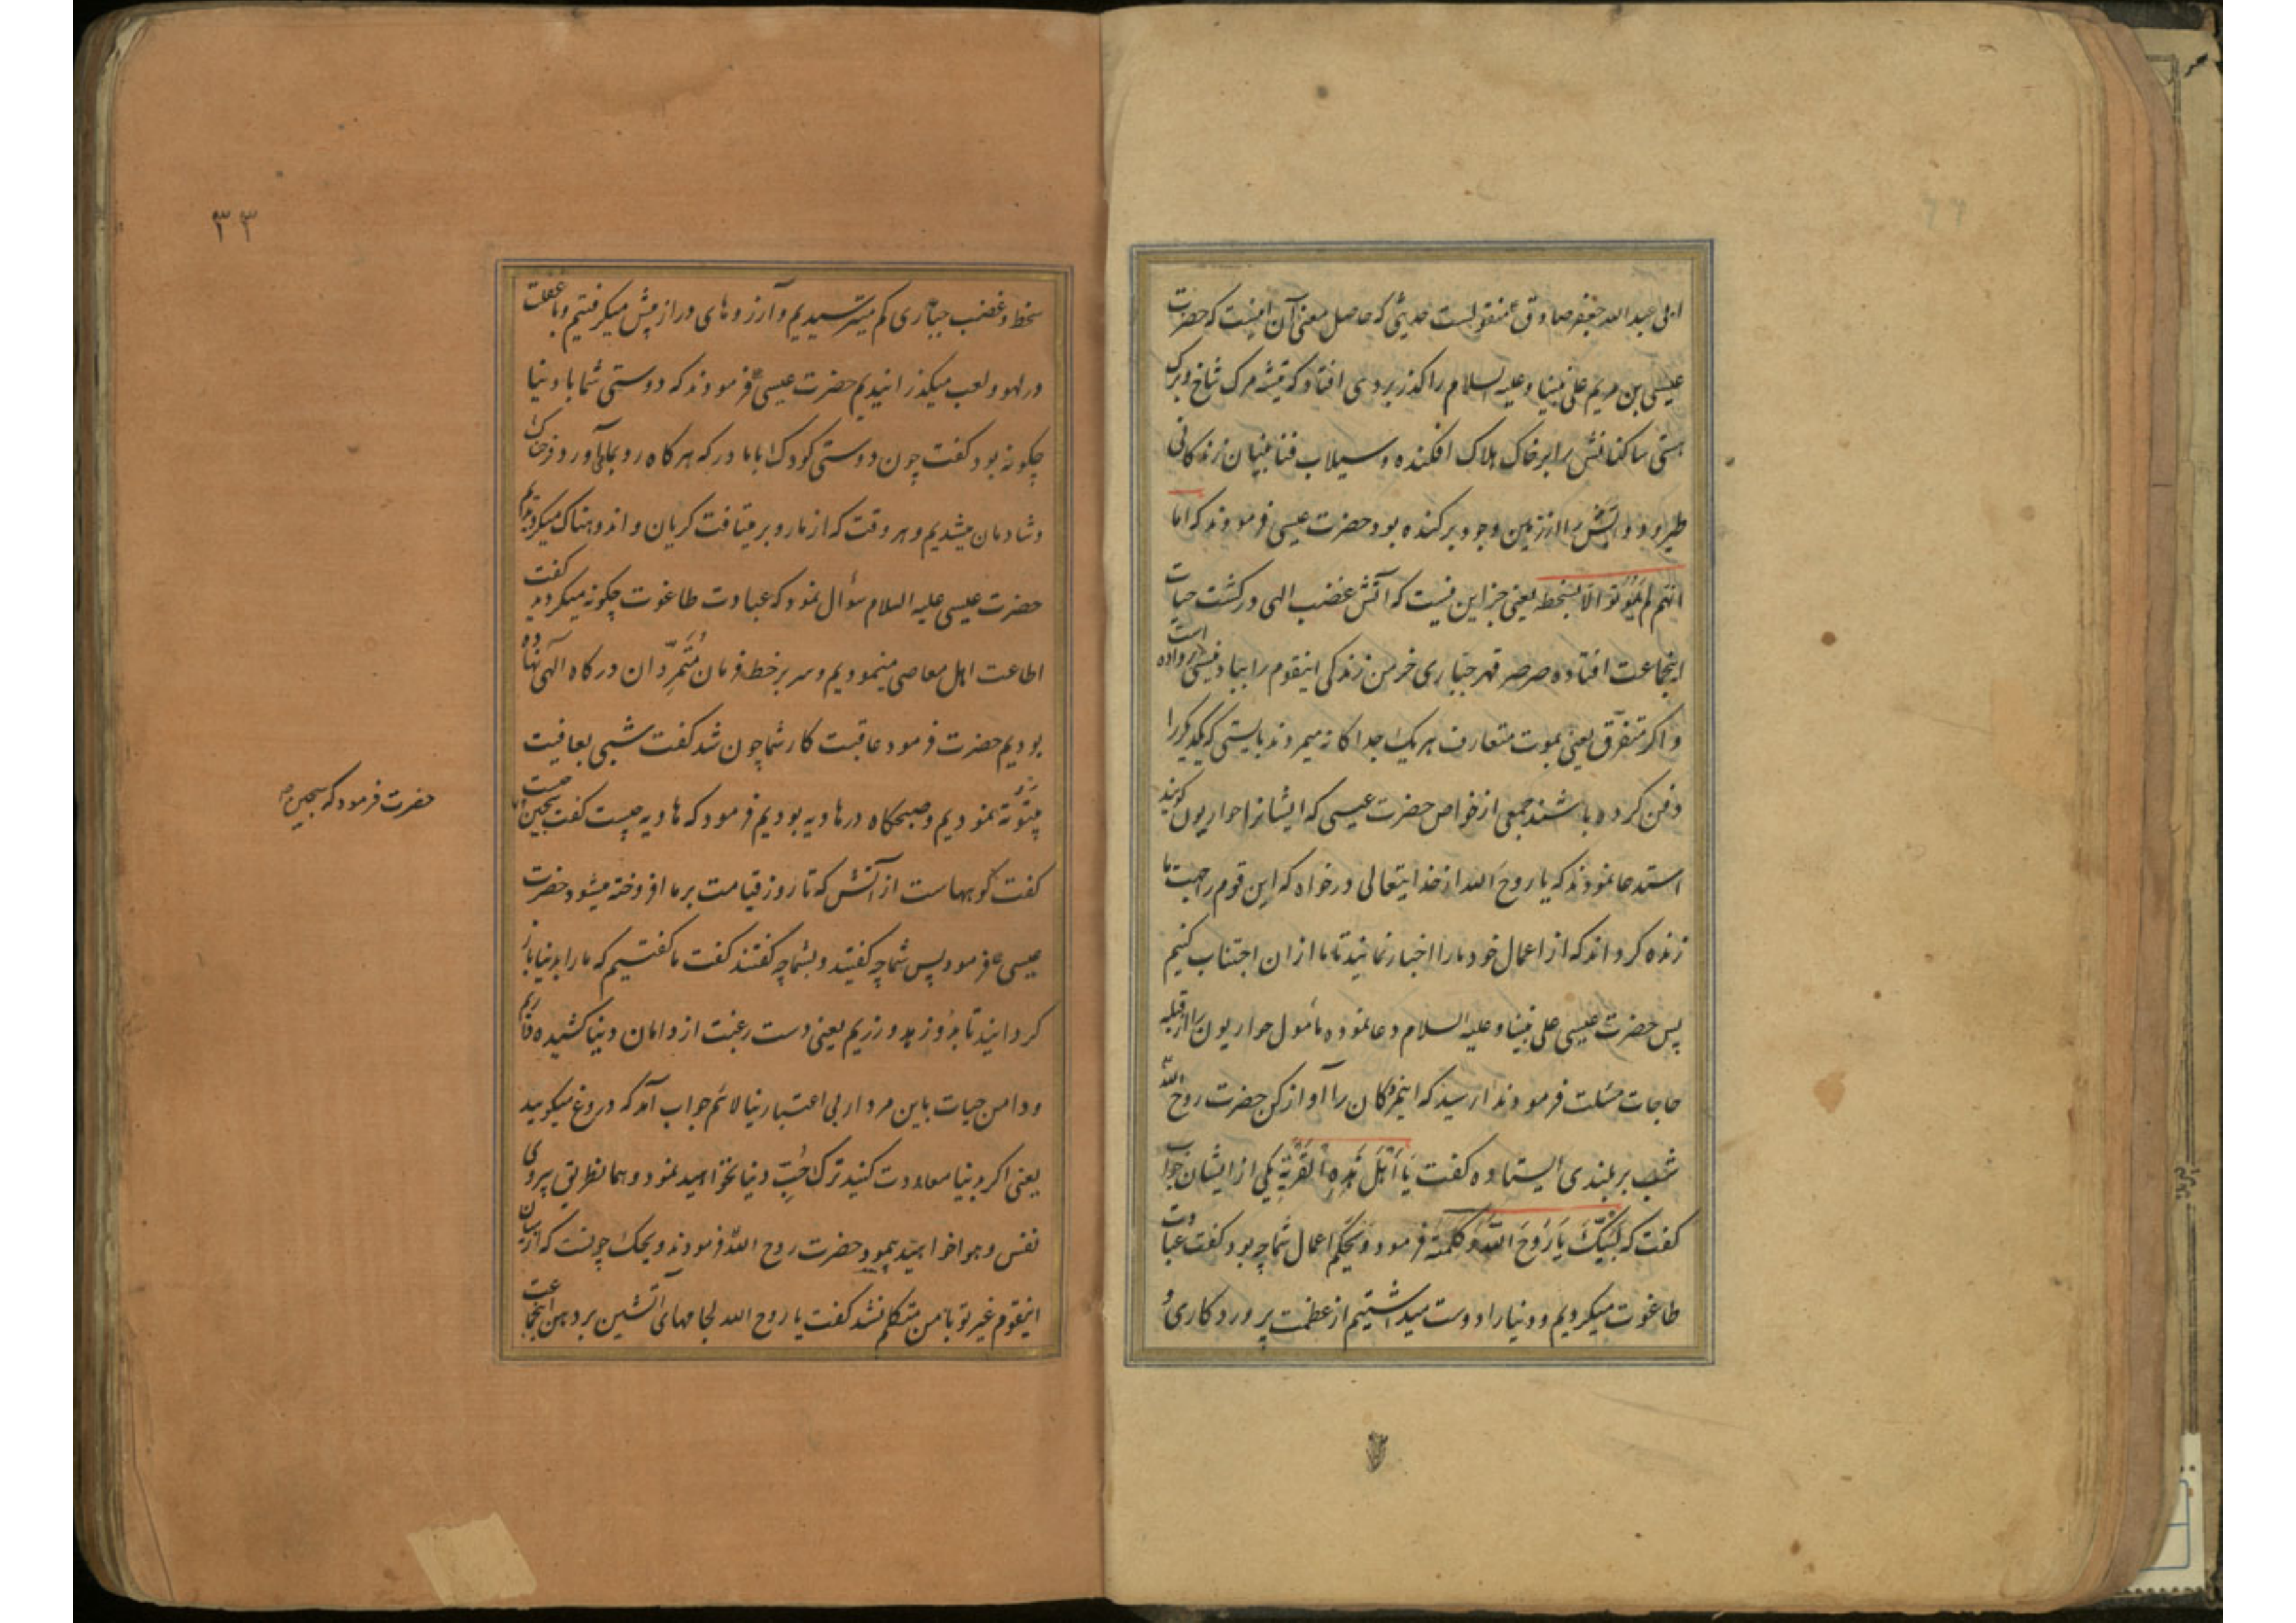 ابی عبدالله جعفر صادق ع منقولست حدیثی که حاصل معنی آن اینست که حضرت
عیسی بن مریم علی نبینا و علیه السلام را گذر بردی افتاد که تیشه مرک شاخ و برک
هستی ساکنانش را بر خاک هلاک افکنده و سیلاب فنا بنیان زندکانی
طیور و دوابش را از زمین وجود برکنده بود حضرت عیسی فرمودند که اما
انهم لم یموتوا الا بسخطه یعنی جز این نیست که آتش غضب الهی در کشت حیات
اینجماعت افتاده صرصر قهر جباری خرمن زندکی اینقوم را بباد نیستی داده است
و اکر متفرق یعنی بموت متعارف هر یک جداکانه میمردند بایستی که یکدیکر را
دفن کرده باشند جمعی از خواص حضرت عیسی که ایشانرا حواریون کویند
استدعا نمودند که یا روح الله از خدایتعالی درخواه که این قوم را جهت ما
زنده کرداند که از اعمال خود ما را اخبار نمایند تا ما از ان اجتناب کنیم
پس حضرت عیسی علی نبینا و علیه السلام دعا نموده مأمول حواریون را از قبله
حاجات مسئلت فرمود ندا رسید که اینمردکان را آواز کن حضرت روح الله
شب بر بلندی ایستاده کفت یا اهل هذه القریة یکی از ایشان جواب
کفت که لبیک یا روح الله و کلمته فرمود ویحکم اعمال شما چه بود کفت عبادت
طاغوت میکردیم و دنیا را دوست میداشتیم از عظمت پروردکاری و
۳۳
سخط و غضب جباری کم میترسیدیم و آرزوهای دراز پیش میکرفتیم و با غفلت
در لهو و لعب میکذرانیدیم حضرت عیسی ع فرمودند که دوستی شما با دنیا
چکونه بود کفت چون دوستی کودک با مادر که هر کاه رو بما می آورد فرحناک
و شادمان میشدیم و هر وقت که از ما رو بر میتافت کریان و اندوهناک میکردیدیم
حضرت عیسی علیه السلام سؤال نمود که عبادت طاغوت چکونه میکردید کفت
اطاعت اهل معاصی مینمودیم و سر بر خط فرمان متمردان درکاه الهی نهاده
بودیم حضرت فرمود عاقبت کار شما چون شد کفت شبی بعافیت
بیتوته نمودیم و صبحکاه در هاویه بودیم فرمود که هاویه چیست کفت سجین است
حضرت فرمود که سجین چیست
کفت کوههاست از آتش که تا روز قیامت بر ما افروخته میشود حضرت
عیسی ع فرمود پس شما چه کفتید و بشما چه گفتند کفت ما کفتیم که ما را بدنیا باز
کردانید تا زهد ورزیم یعنی دست رغبت از دامان دنیا کشیده داریم
و دامن حیات باین مردار بی اعتبار نیالائم جواب آمد که دروغ میکویید
یعنی اکر بدنیا معاودت کنید ترک حب دنیا نخواهید نمود و همانطریق پیروی
نفس و هوا خواهید پیمود حضرت روح الله فرمودند ویحک چونست که از میان
اینقوم غیر تو با من متکلم نشد کفت یا روح الله لجامهای آتشین بر دهن اینجماعت